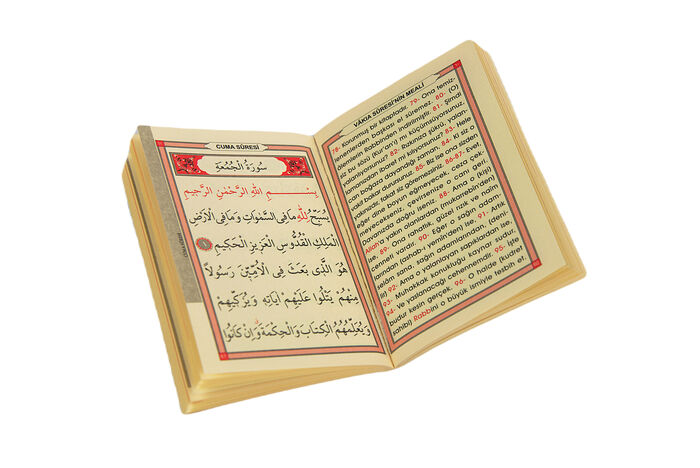 VÂKIA SÛRESİ'NİN MEALİ
78- Korunmuş bir kitaptadır. 79- Ona temiz-
lenenlerden başkası el süremez. 80- (O)
âlemlerin Rabbinden indirilmiştir. 81- Şimdi
siz bu sözü (Kur'an'ı) mı küçümsüyorsunuz.
yalanlıyorsunuz? 82- Rızkınıza şükrü, yalan-
lamanızdan ibaret mi kılıyorsunuz? 83- Hele
can boğaza dayandığı zaman, 84- Ki siz o
vakit bakar durursunuz. 85- Biz ise ona sizden
yakınızdır, fakat siz göremezsiniz. 86-87- Evet,
eğer dine boyun eğmeyecek, ceza çek-
meyecekseniz, çevirsenize o canı geri,
Davanızda doğru iseniz. 88- Ama o (kişi)
Allah'a yakın olanlardan (mukarreblerden)
ise, 89- Ona rahatlık, güzel rızık ve naîm
cenneti vardır. 90- Eğer o sağın adam-
larından (ashab-ı yeminden) ise, 91- Artık
selâm sana, sağın adamlarından, (deni-
lir) 92- Ama o yalanlayan sapıklardan ise,
93- Muhakkak konukluğu kaynar sudur,
94- Ve yaslanacağı cehennemdir. 95- İşte
budur kesin gerçek. 96- O halde (kudret
sahibi) Rabbini o büyük ismiyle tesbih et
CUMA SÛRESİ
سُورَةُ الْجُمُعَةِ
بِسْمِ اللهِ الرَّحْمٰنِ الرَّحِيمِ
يُسَبِّحُ لِلّٰهِ مَا فِي السَّمٰوَاتِ وَمَا فِي الْاَرْضِ
الْمَلِكِ الْقُدُّوسِ الْعَزِيزِ الْحَكِيمِ ١
هُوَ الَّذِي بَعَثَ فِي الْاُمِّيّٖنَ رَسُولًا
مِنْهُمْ يَتْلُوا عَلَيْهِمْ اٰيَاتِهِ وَيُزَكِّيهِمْ
وَيُعَلِّمُهُمُ الْكِتَابَ وَالْحِكْمَةَ وَاِنْ كَانُوا